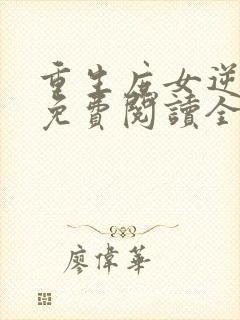 重生庶女逆
免費閱讀全
廖偉華